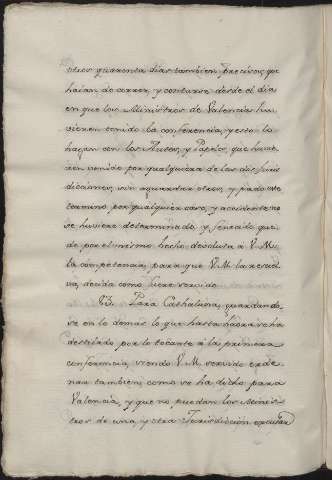 otros quarenta dias tambien precisos, que
haian de correr, y contarse desde el dia
en que los Ministros de Valencia hu-
vieren tenido la conferencia, y esto lo
hagan con los Autos, y Papeles, que huvie-
ren venido por qualquiera de las dos Juris
dicciones, sin aguardar otros, y pasado este
termino por qualquier caso, y accidente no
se huviere determinado, y fenecido que-
de por el mismo hecho devoluta a V. M.
la competencia, para que V. M. la resuel-
va, decida como fuere servido.
Para Cathaluña, guardando-
se en lo demas lo que hasta haora se ha
destilado por lo tocante à la primera
conferencia, siendo V. M. servido orde-
nar tambien, como se ha dicho para
Valencia, y que no puedan los Minis-
tros de una, y otra Jurisdiccion